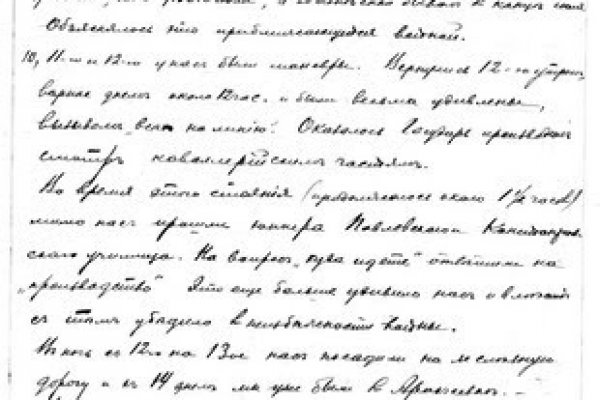 Объяснялось это приближающейся войной.
10, 11-го и 12-го у насъ были маневры. Вернулись 12-го утромъ,
варнее днемъ около 12 час. и были весьма удивлены,
вызовомъ „всѣ на линію". Оказалось Государь производилъ
смотръ кавалерійскимъ частямъ.
Во время этого стоянія (продолжалось около 1½ часовъ)
мимо насъ прошли юнкера Павловскаго Константинов-
скаго училища. На вопросъ „куда идете" отвѣтили на
„производство" Это еще больше удивило насъ и вмѣстѣ
съ тѣмъ убѣдило въ неизбѣжности войны.
Въ ночь съ 12го на 13ое насъ посадили на желѣзную
дорогу и въ 14 днемъ мы уже были въ